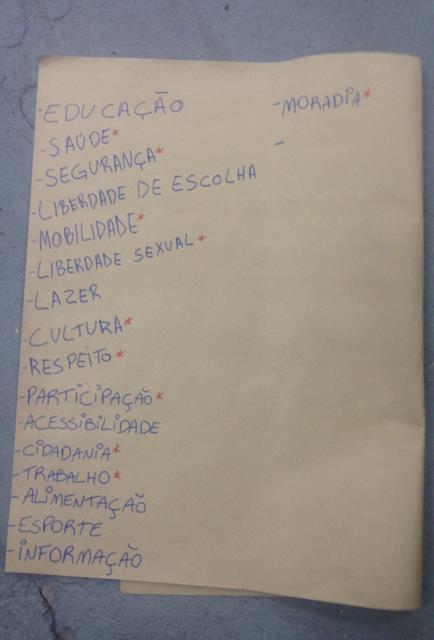 -EDUCAÇÃO
-SAÚDE*
-SEGURANÇA*
-LIBERDADE DE ESCOLHA
-MOBILIDADE*
-LIBERDADE SEXUAL*
-LAZER
-CULTURA*
-RESPEITO*
-PARTICIPAÇÃO*
-ACESSIBILIDADE
-CIDADANIA*
-TRABALHO*
-ALIMENTAÇÃO
-ESPORTE
-INFORMAÇÃO
-MORADIA*
-